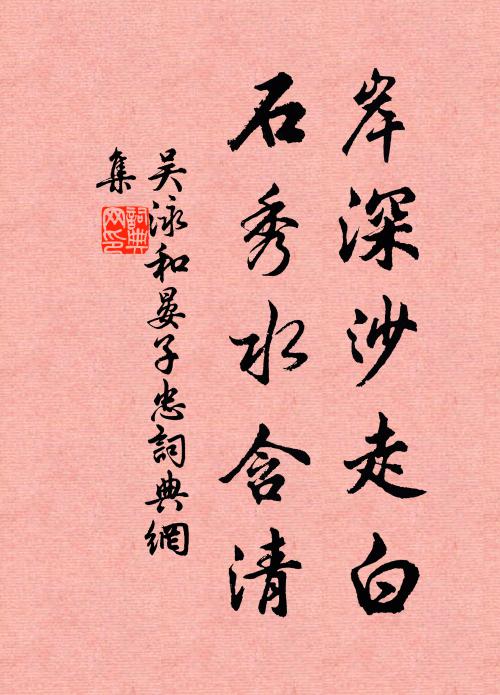 岸深沙走白
石秀水含清
吴泳和晏子忠詞典網
集
詞典
网印